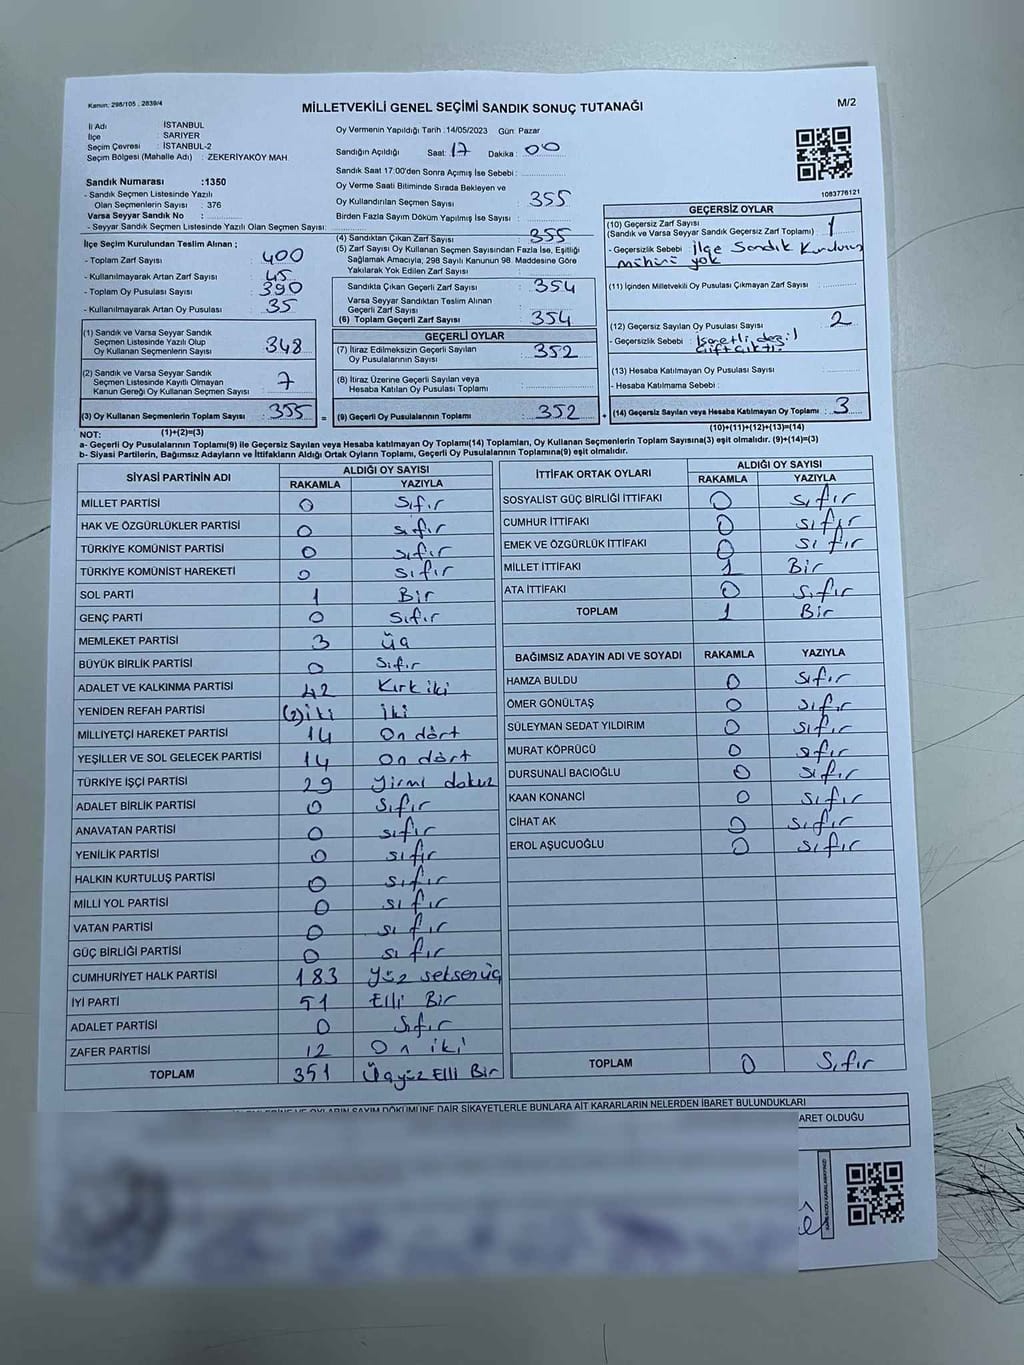 Kanun: 298/105 , 2839/4
MİLLETVEKİLİ GENEL SEÇİMİ SANDIK SONUÇ TUTANAĞI
M/2
İl Adı : İSTANBUL
İlçe : SARIYER
Seçim Çevresi : İSTANBUL-2
Seçim Bölgesi (Mahalle Adı) : ZEKERİYAKÖY MAH.
Sandık Numarası :1350
- Sandık Seçmen Listesinde Yazılı
Olan Seçmenlerin Sayısı : 376
Varsa Seyyar Sandık No :
- Seyyar Sandık Seçmen Listesinde Yazılı Olan Seçmen Sayısı:
Oy Vermenin Yapıldığı Tarih :14/05/2023 Gün: Pazar
Sandığın Açıldığı Saat: 17 Dakika : 00
Sandık Saat 17:00'den Sonra Açımış İse Sebebi :
Oy Verme Saati Bitiminde Sırada Bekleyen ve
Oy Kullandırılan Seçmen Sayısı : 355
Birden Fazla Sayım Döküm Yapılmış İse Sayısı :
1083776121
İlçe Seçim Kurulundan Teslim Alınan ;
- Toplam Zarf Sayısı : 400
- Kullanılmayarak Artan Zarf Sayısı : 45
- Toplam Oy Pusulası Sayısı : 390
- Kullanılmayarak Artan Oy Pusulası : 35
(1) Sandık ve Varsa Seyyar Sandık
Seçmen Listesinde Yazılı Olup
Oy Kullanan Seçmenlerin Sayısı : 348
(2) Sandık ve Varsa Seyyar Sandık
Seçmen Listesinde Kayıtlı Olmayan
Kanun Gereği Oy Kullanan Seçmen Sayısı : 7
(3) Oy Kullanan Seçmenlerin Toplam Sayısı : 355 =
(1)+(2)=(3)
(4) Sandıktan Çıkan Zarf Sayısı : 355
(5) Zarf Sayısı Oy Kullanan Seçmen Sayısından Fazla İse, Eşitliği
Sağlamak Amacıyla, 298 Sayılı Kanunun 98. Maddesine Göre
Yakılarak Yok Edilen Zarf Sayısı :
Sandıkta Çıkan Geçerli Zarf Sayısı : 354
Varsa Seyyar Sandıktan Teslim Alınan
Geçerli Zarf Sayısı :
(6) Toplam Geçerli Zarf Sayısı : 354
GEÇERLİ OYLAR
(7) İtiraz Edilmeksizin Geçerli Sayılan
Oy Pusulalarının Sayısı : 352
(8) İtiraz Üzerine Geçerli Sayılan veya
Hesaba Katılan Oy Pusulası Toplamı :
(9) Geçerli Oy Pusulalarının Toplamı : 352 +
GEÇERSİZ OYLAR
(10) Geçersiz Zarf Sayısı
(Sandık ve Varsa Seyyar Sandık Geçersiz Zarf Toplamı) : 1
- Geçersizlik Sebebi : İlçe Sandık Kurulunun
mührü yok
(11) İçinden Milletvekili Oy Pusulası Çıkmayan Zarf Sayısı :
(12) Geçersiz Sayılan Oy Pusulası Sayısı : 2
- Geçersizlik Sebebi : İşaretli değil
çift çıktı
(13) Hesaba Katılmayan Oy Pusulası Sayısı :
- Hesaba Katılmama Sebebi :
(14) Geçersiz Sayılan veya Hesaba Katılmayan Oy Toplamı : 3
(10)+(11)+(12)+(13)=(14)
NOT:
a- Geçerli Oy Pusulalarının Toplamı(9) ile Geçersiz Sayılan veya Hesaba katılmayan Oy Toplamı(14) Toplamları, Oy Kullanan Seçmenlerin Toplam Sayısına(3) eşit olmalıdır. (9)+(14)=(3)
b- Siyasi Partilerin, Bağımsız Adayların ve İttifakların Aldığı Ortak Oyların Toplamı, Geçerli Oy Pusulalarının Toplamına(9) eşit olmalıdır.
SİYASİ PARTİNİN ADI ALDIĞI OY SAYISI
RAKAMLA YAZIYLA
MİLLET PARTİSİ 0 Sıfır
HAK VE ÖZGÜRLÜKLER PARTİSİ 0 sıfır
TÜRKİYE KOMÜNİST PARTİSİ 0 sıfır
TÜRKİYE KOMÜNİST HAREKETİ 0 sıfır
SOL PARTİ 1 Bir
GENÇ PARTİ 0 Sıfır
MEMLEKET PARTİSİ 3 üç
BÜYÜK BİRLİK PARTİSİ 0 Sıfır
ADALET VE KALKINMA PARTİSİ 42 Kırk iki
YENİDEN REFAH PARTİSİ (2) iki iki
MİLLİYETÇİ HAREKET PARTİSİ 14 On dört
YEŞİLLER VE SOL GELECEK PARTİSİ 14 On dört
TÜRKİYE İŞÇİ PARTİSİ 29 yirmi dokuz
ADALET BİRLİK PARTİSİ 0 Sıfır
ANAVATAN PARTİSİ 0 sıfır
YENİLİK PARTİSİ 0 sıfır
HALKIN KURTULUŞ PARTİSİ 0 sıfır
MİLLİ YOL PARTİSİ 0 sıfır
VATAN PARTİSİ 0 sıfır
GÜÇ BİRLİĞİ PARTİSİ 0 sıfır
CUMHURİYET HALK PARTİSİ 183 yüz seksenüç
İYİ PARTİ 51 Elli Bir
ADALET PARTİSİ 0 Sıfır
ZAFER PARTİSİ 12 On iki
TOPLAM 351 Üçyüz Elli Bir
İTTİFAK ORTAK OYLARI ALDIĞI OY SAYISI
RAKAMLA YAZIYLA
SOSYALİST GÜÇ BİRLİĞİ İTTİFAKI 0 sıfır
CUMHUR İTTİFAKI 0 sıfır
EMEK VE ÖZGÜRLÜK İTTİFAKI 0 sıfır
MİLLET İTTİFAKI 1 Bir
ATA İTTİFAKI 0 sıfır
TOPLAM 1 Bir
BAĞIMSIZ ADAYIN ADI VE SOYADI RAKAMLA YAZIYLA
HAMZA BULDU 0 sıfır
ÖMER GÖNÜLTAŞ 0 sıfır
SÜLEYMAN SEDAT YILDIRIM 0 sıfır
MURAT KÖPRÜCÜ 0 sıfır
DURSUNALİ BACIOĞLU 0 sıfır
KAAN KONANCİ 0 sıfır
CİHAT AK 0 sıfır
EROL AŞUCUOĞLU 0 sıfır
TOPLAM 0 Sıfır
OYLARIN SAYIM DÖKÜMÜNE DAİR ŞİKAYETLERLE BUNLARA AİT KARARLARIN NELERDEN İBARET BULUNDUKLARI
ARET OLDUĞU